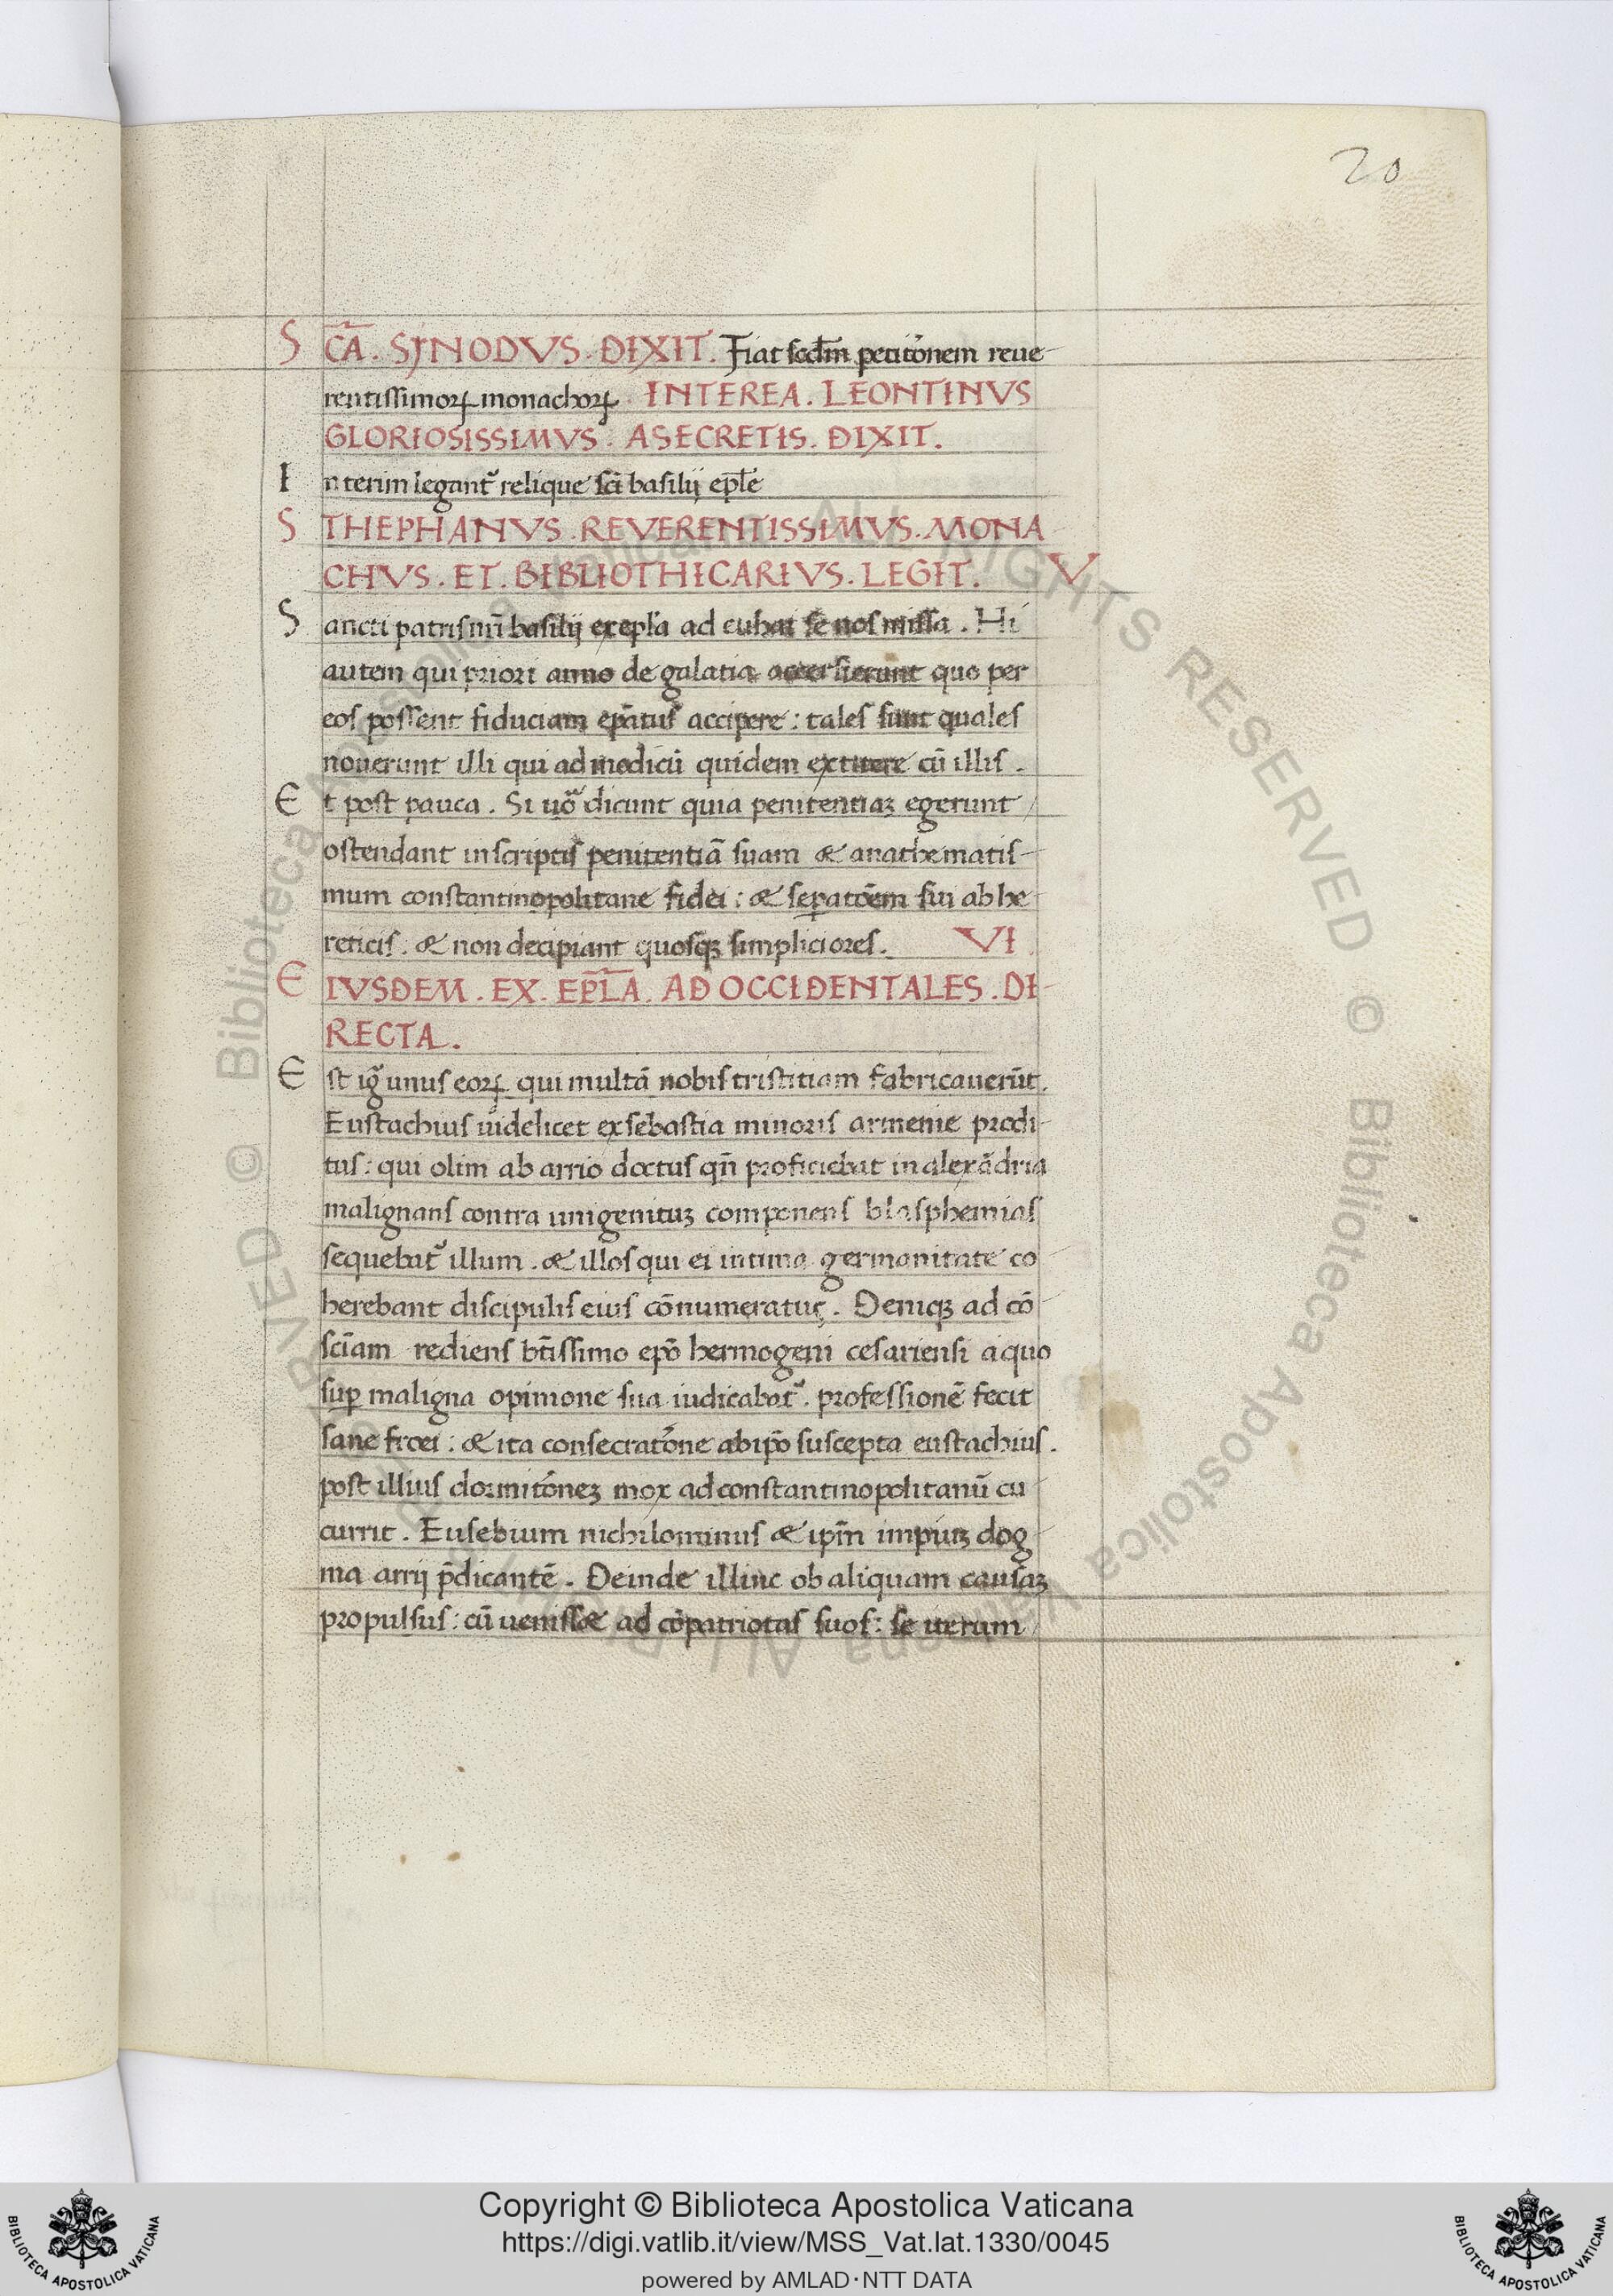 20
SCA. SJNODVS. DIXIT. Fiat scdm petitonem reue-
rentissimoꝝ monachoꝝ. INTEREA. LEONTINVS
GLORIOSISSIMVS. ASECRETIS. DIXIT.
Interim legant᷑ relique sci basilij eple
STHEPHANVS. REVERENTISSIMVS. MONA
CHVS. ET. BIBLIOTHICARIVS. LEGIT. V
Sancti patris nr̄i basilij ex epla ad missa. Hi
autem qui priori anno de galatia accersierunt quo per
eos possent fiduciam ep̄atus accipere: tales sunt quales
nouerunt illi qui ad modicū quidem cū illis.
Et post pauca. Si uo᷑ dicunt quia penitentiaꝫ egerunt
ostendant in scriptis penitentiā suam & anathematis-
mum constantinopolitane fidei: & sepatōem sui ab he-
reticis: & non decipiant quosqꝫ simpliciores. VI
EIVSDEM. EX. EPLA. AD OCCIDENTALES. DI-
RECTA.
Est ig᷑ unus eoꝝ qui multā nobis tristitiam fabricauerūt.
Eustachius uidelicet ex sebastia minoris armenie prodi-
tus: qui olim ab arrio doctus qn̄ proficiebat in alexādria
malignans contra unigenituꝫ componens blasphemias
sequebat᷑ illum. & illos qui ei intima germanitate co-
herebant discipulis eius cōnumeratur. Deniqꝫ ad cō-
sciam rediens btissimo epō hermogeni cesariensi a quo
sup maligna opinione sua iudicabat᷑. professionē fecit
sane fidei: & ita consecratōne ab ipō suscepta eustachius.
post illius dormitōneꝫ mox ad constantinopolitanū cu-
currit. Eusebium nichilominus & ipm̄ impiuꝫ dog-
ma arrij p̄dicantē. Deinde illinc ob aliquam causaꝫ
propulsus: cū uenisset ad cōpatriotas suos: se iterum
Copyright © Biblioteca Apostolica Vaticana
https://digi.vatlib.it/view/MSS_Vat.lat.1330/0045
powered by AMLAD·NTT DATA